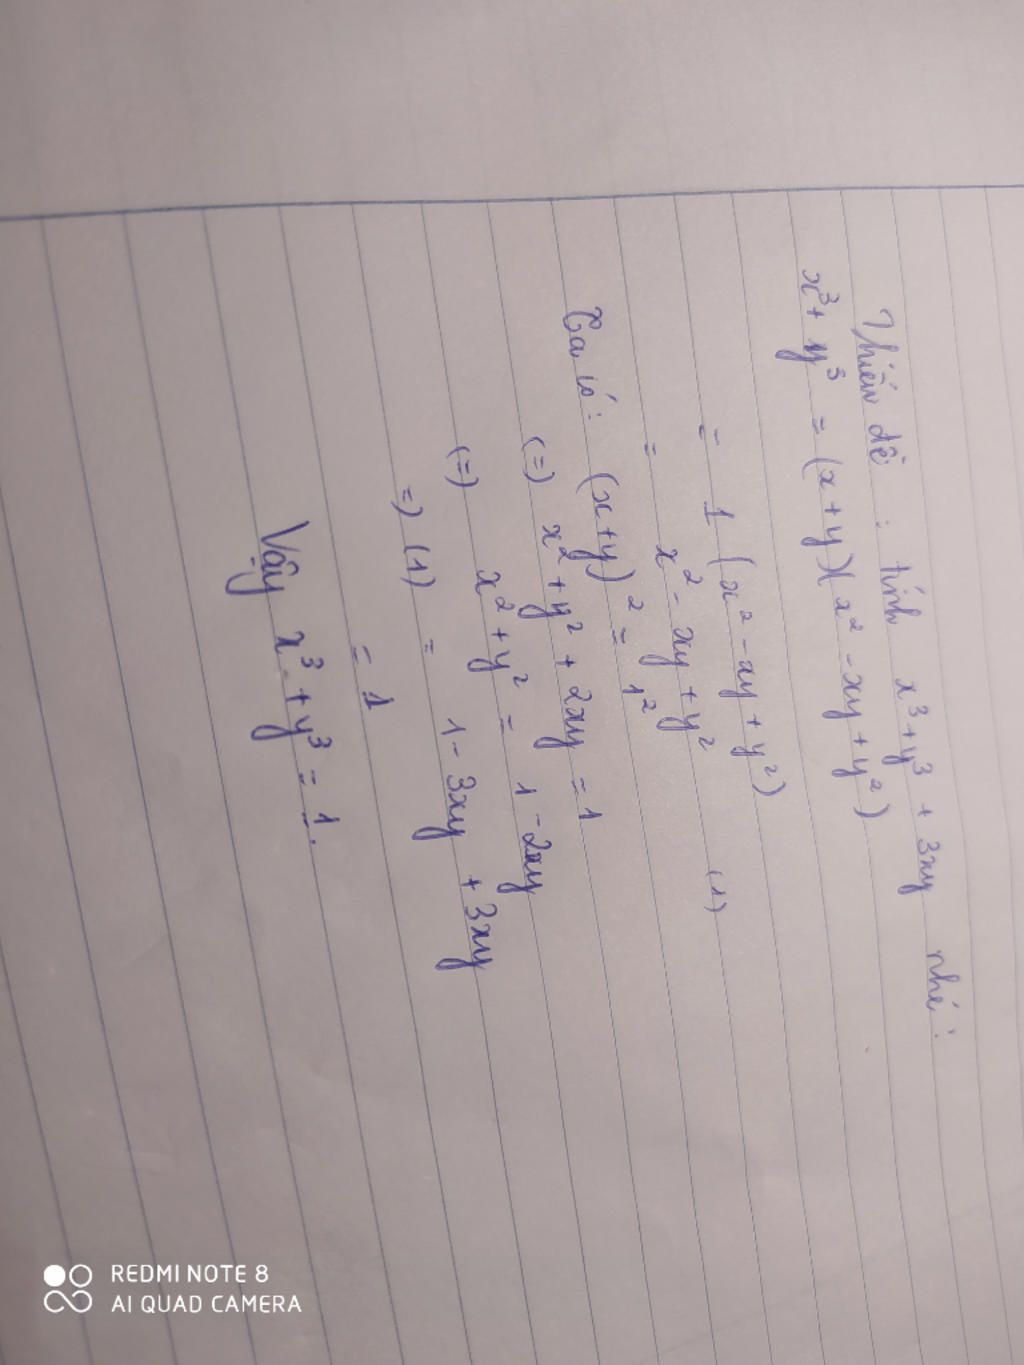 Thiếu đề : tính x³+y³ + 3xy nhé :
x³+ y³ = (x+y)(x² -xy+y²)
= 1 (x² -xy+y²)
= x² - xy + y² (1)
Ta có : (x+y)² = 1²
(=) x² + y² + 2xy = 1
(=) x² + y² = 1 - 2xy
=) (1) = 1 - 3xy + 3xy
= 1
Vậy x³ + y³ = 1.
REDMI NOTE 8
AI QUAD CAMERA